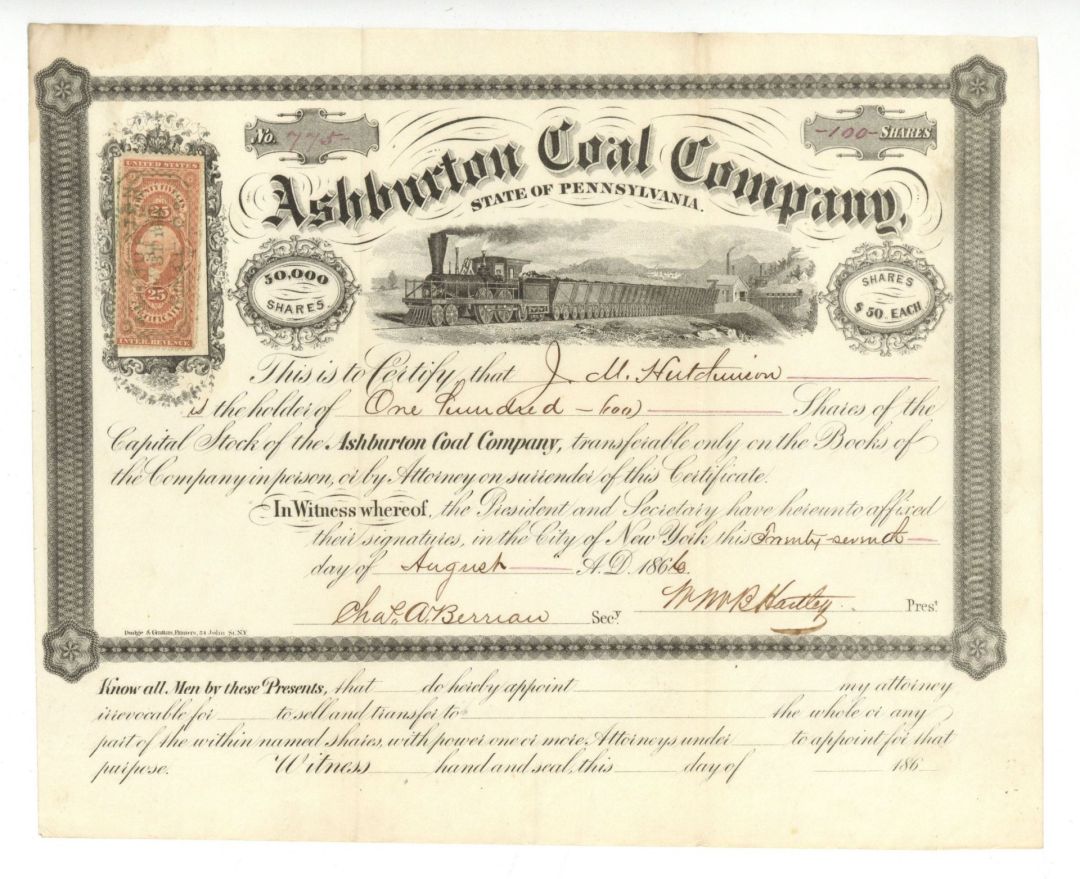 No. 775
-100- SHARES
Ashburton Coal Company,
STATE OF PENNSYLVANIA.
UNITED STATES
25
25
CERTIFICATE
INTER. REVENUE
50,000
SHARES
SHARES
$50. EACH
This is to Certify that J. M. Hutchinson
is the holder of One hundred - (100) Shares of the
Capital Stock of the Ashburton Coal Company, transferable only on the Books of
the Company in person, or by Attorney on surrender of this Certificate.
In Witness whereof, the President and Secretary have hereunto affixed
their signatures, in the City of New York this Twenty-seventh
day of August A.D. 1866.
Chas. A. Berrian Secy. Wm B Hartley Prest
Dodge & Grattan, Printers, 84 John St. N.Y.
Know all Men by these Presents, that do hereby appoint my attorney
irrevocable for to sell and transfer to the whole or any
part of the within named shares, with power one or more Attorneys under to appoint for that
purpose. Witness hand and seal, this day of 186